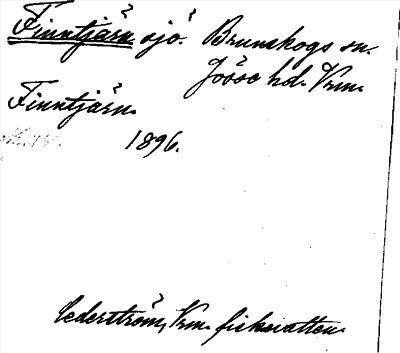 Finntjärn sjö. Brunskogs sn.
Jösse hd. Vrm.
Finntjärn.
1896.
Cederström, Vrm. fiskevatten.